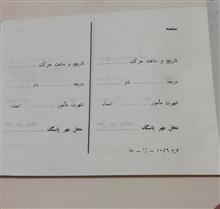 صفحه
تاریخ و ساعت حرکت
درجه نام
شهرت مأمور امضاء
محل مهر پاسگاه
تاریخ و ساعت حرکت
درجه نام
شهرت مأمور امضاء
محل مهر پاسگاه